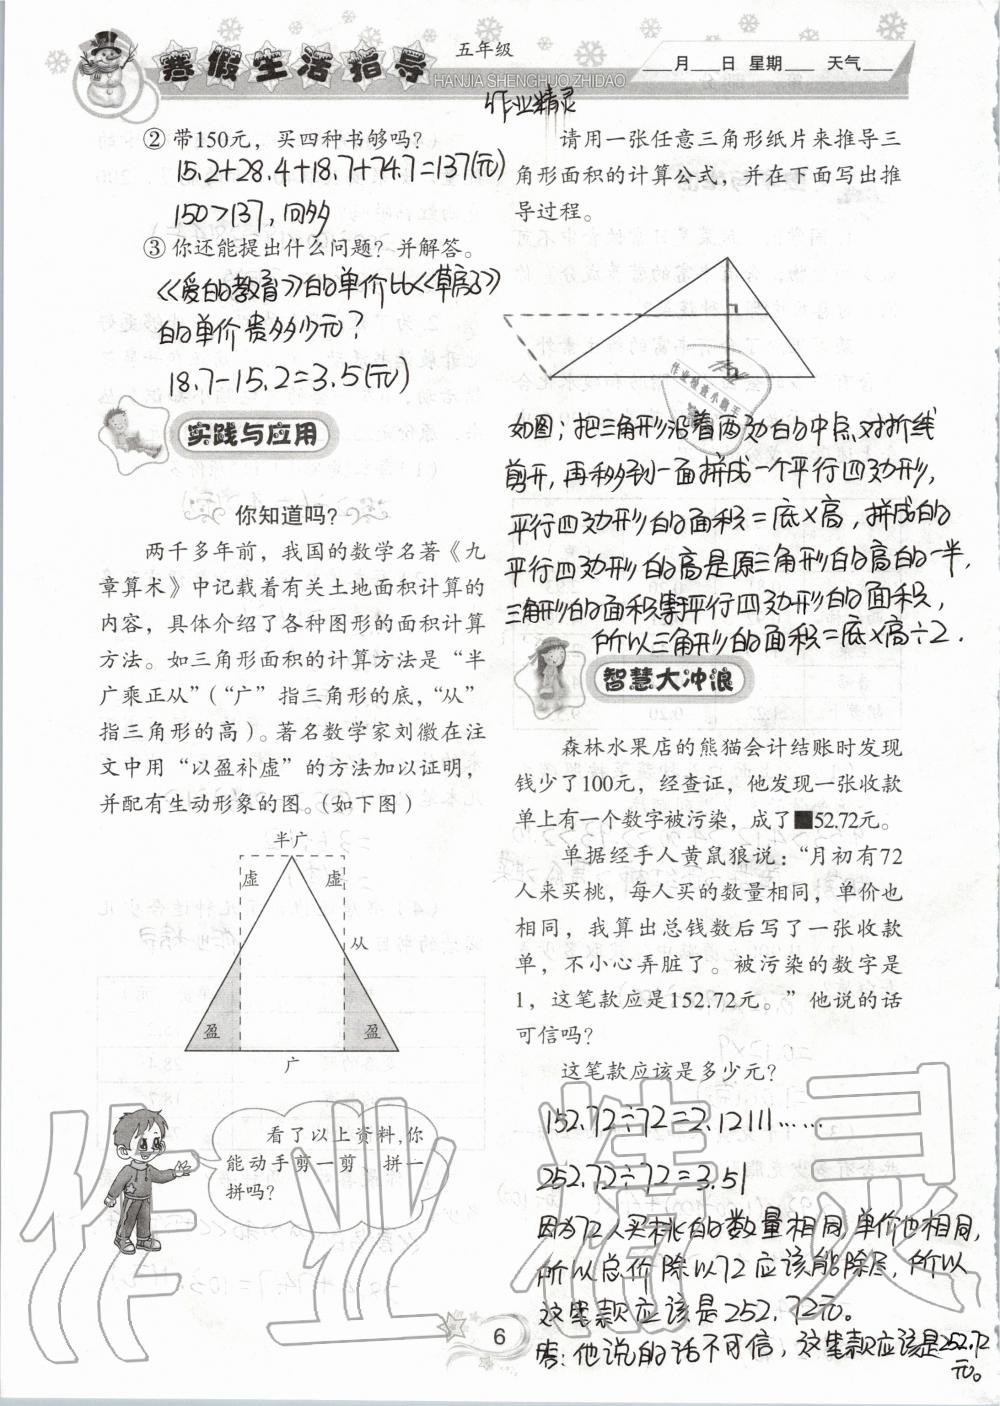 寒假生活指导
五年级
HANJIA SHENGHUO ZHIDAO
月 日 星期 天气
作业精灵
② 带150元，买四种书够吗？
15.2+28.4+18.7+74.7=137(元)
150>137,
③ 你还能提出什么问题？并解答。
《爱的教育》的单价比《草房子》
的单价贵多少元？
18.7-15.2=3.5(元)
实践与应用
你知道吗？
两千多年前，我国的数学名著《九
章算术》中记载着有关土地面积计算的
内容，具体介绍了各种图形的面积计算
方法。如三角形面积的计算方法是“半
广乘正从”（“广”指三角形的底，“从”
指三角形的高）。著名数学家刘徽在注
文中用“以盈补虚”的方法加以证明，
并配有生动形象的图。（如下图）
半广
虚 虚
从
盈 盈
广
看了以上资料，你
能动手剪一剪、拼一
拼吗？
请用一张任意三角形纸片来推导三
角形面积的计算公式，并在下面写出推
导过程。
如图；把三角形沿着两边的中点对折线
剪开，再移到一面拼成一个平行四边形，
平行四边形的面积=底×高，拼成的
平行四边形的高是原三角形的高的一半，
三角形的面积等于平行四边形的面积，
所以三角形的面积=底×高÷2.
智慧大冲浪
森林水果店的熊猫会计结账时发现
钱少了100元，经查证，他发现一张收款
单上有一个数字被污染，成了■52.72元。
单据经手人黄鼠狼说：“月初有72
人来买桃，每人买的数量相同，单价也
相同，我算出总钱数后写了一张收款
单，不小心弄脏了。被污染的数字是
1，这笔款应是152.72元。”他说的话
可信吗？
这笔款应该是多少元？
152.72÷72=2.12111……
252.72÷72=3.51
因为72人买桃的数量相同,单价也相同,
所以总价除以72应该能除尽,所以
这笔款应该是252.72元。
答：他说的话不可信，这笔款应该是252.72
元。
6
作业精灵